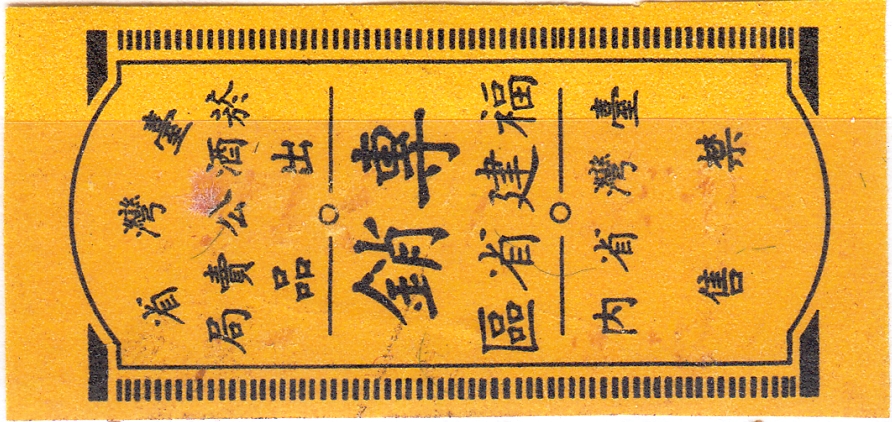 臺灣省
菸酒公賣局
出品
專銷
福建省區
臺灣省內
禁售